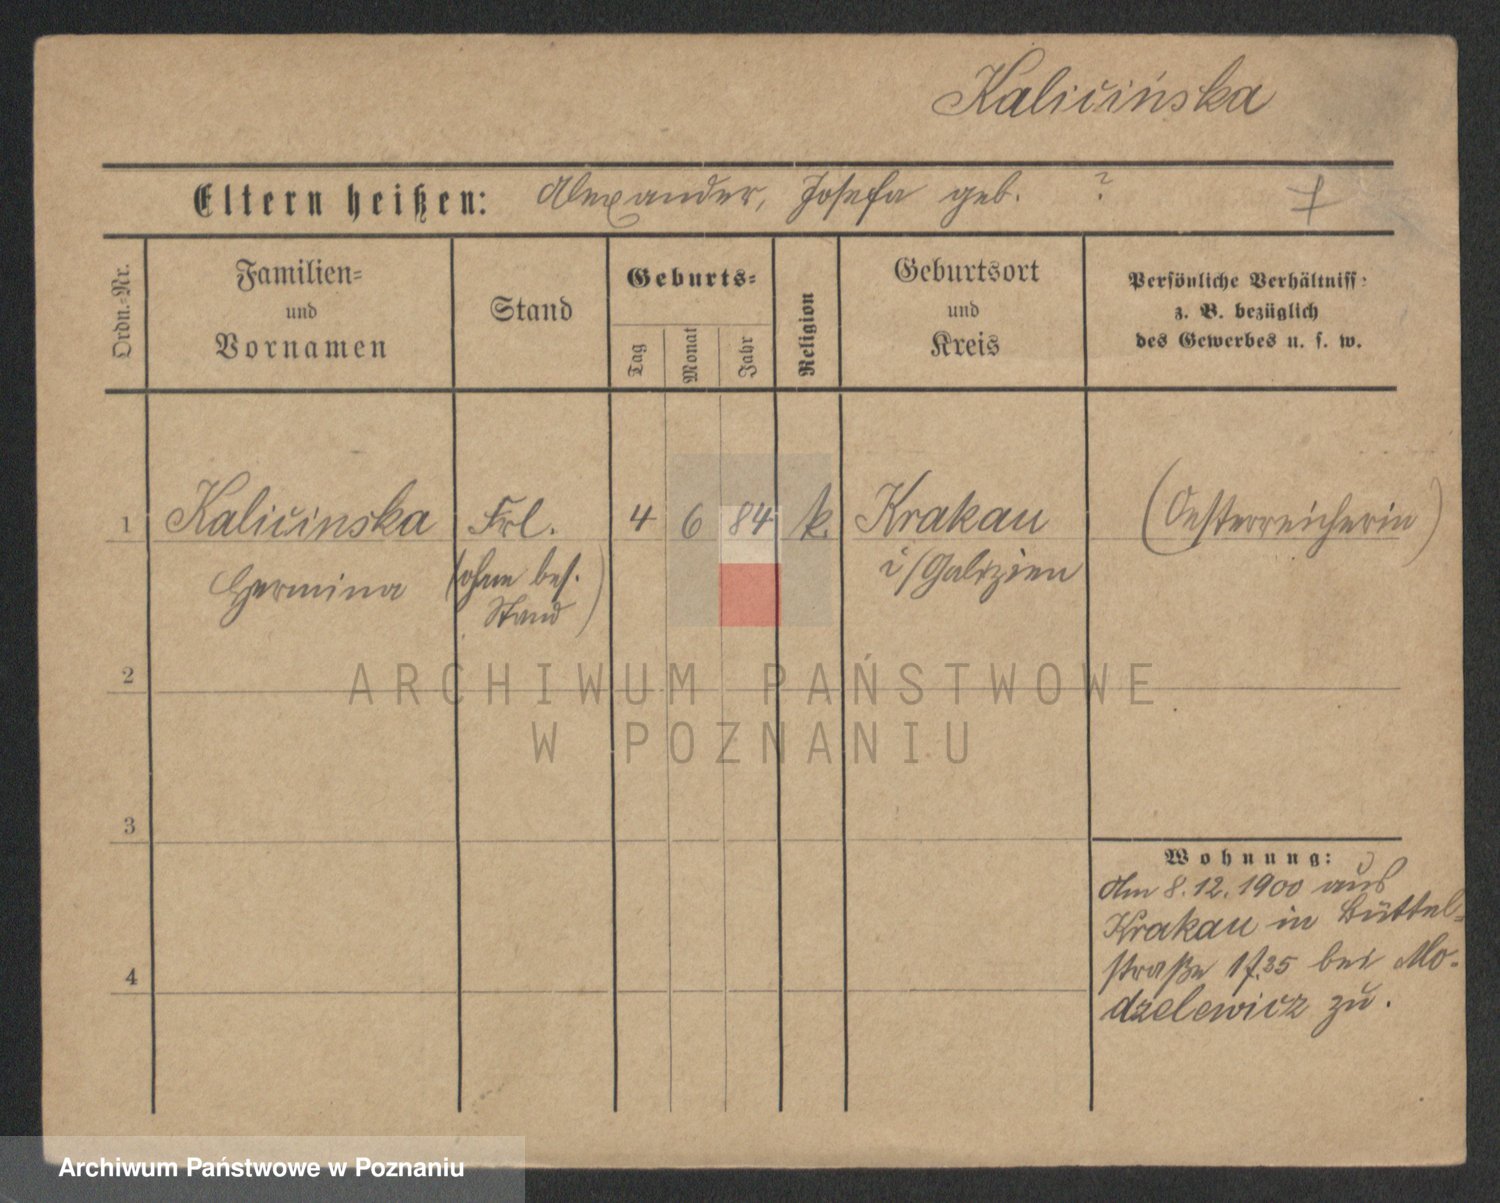 Kalicińska
Eltern heißen: Alexander, Josefa geb. ?
Ordn.-Nr.
Familien-
und
Vornamen
Stand
Geburts-
Tag
Monat
Jahr
Religion
Geburtsort
und
Kreis
Persönliche Verhältniss-
z. B. bezüglich
des Gewerbes u. s. w.
1 Kalicinska Frl. 4 6 84 k. Krakau (Oesterreicherin)
Hermina (ohne bes. i/Galizien
Stand)
2
ARCHIWUM PAŃSTWOWE
W POZNANIU
3
Wohnung:
Am 8.12.1900 aus
Krakau in Büttel-
straße bei Mo-
dzelewicz zu.
4
Archiwum Państwowe w Poznaniu